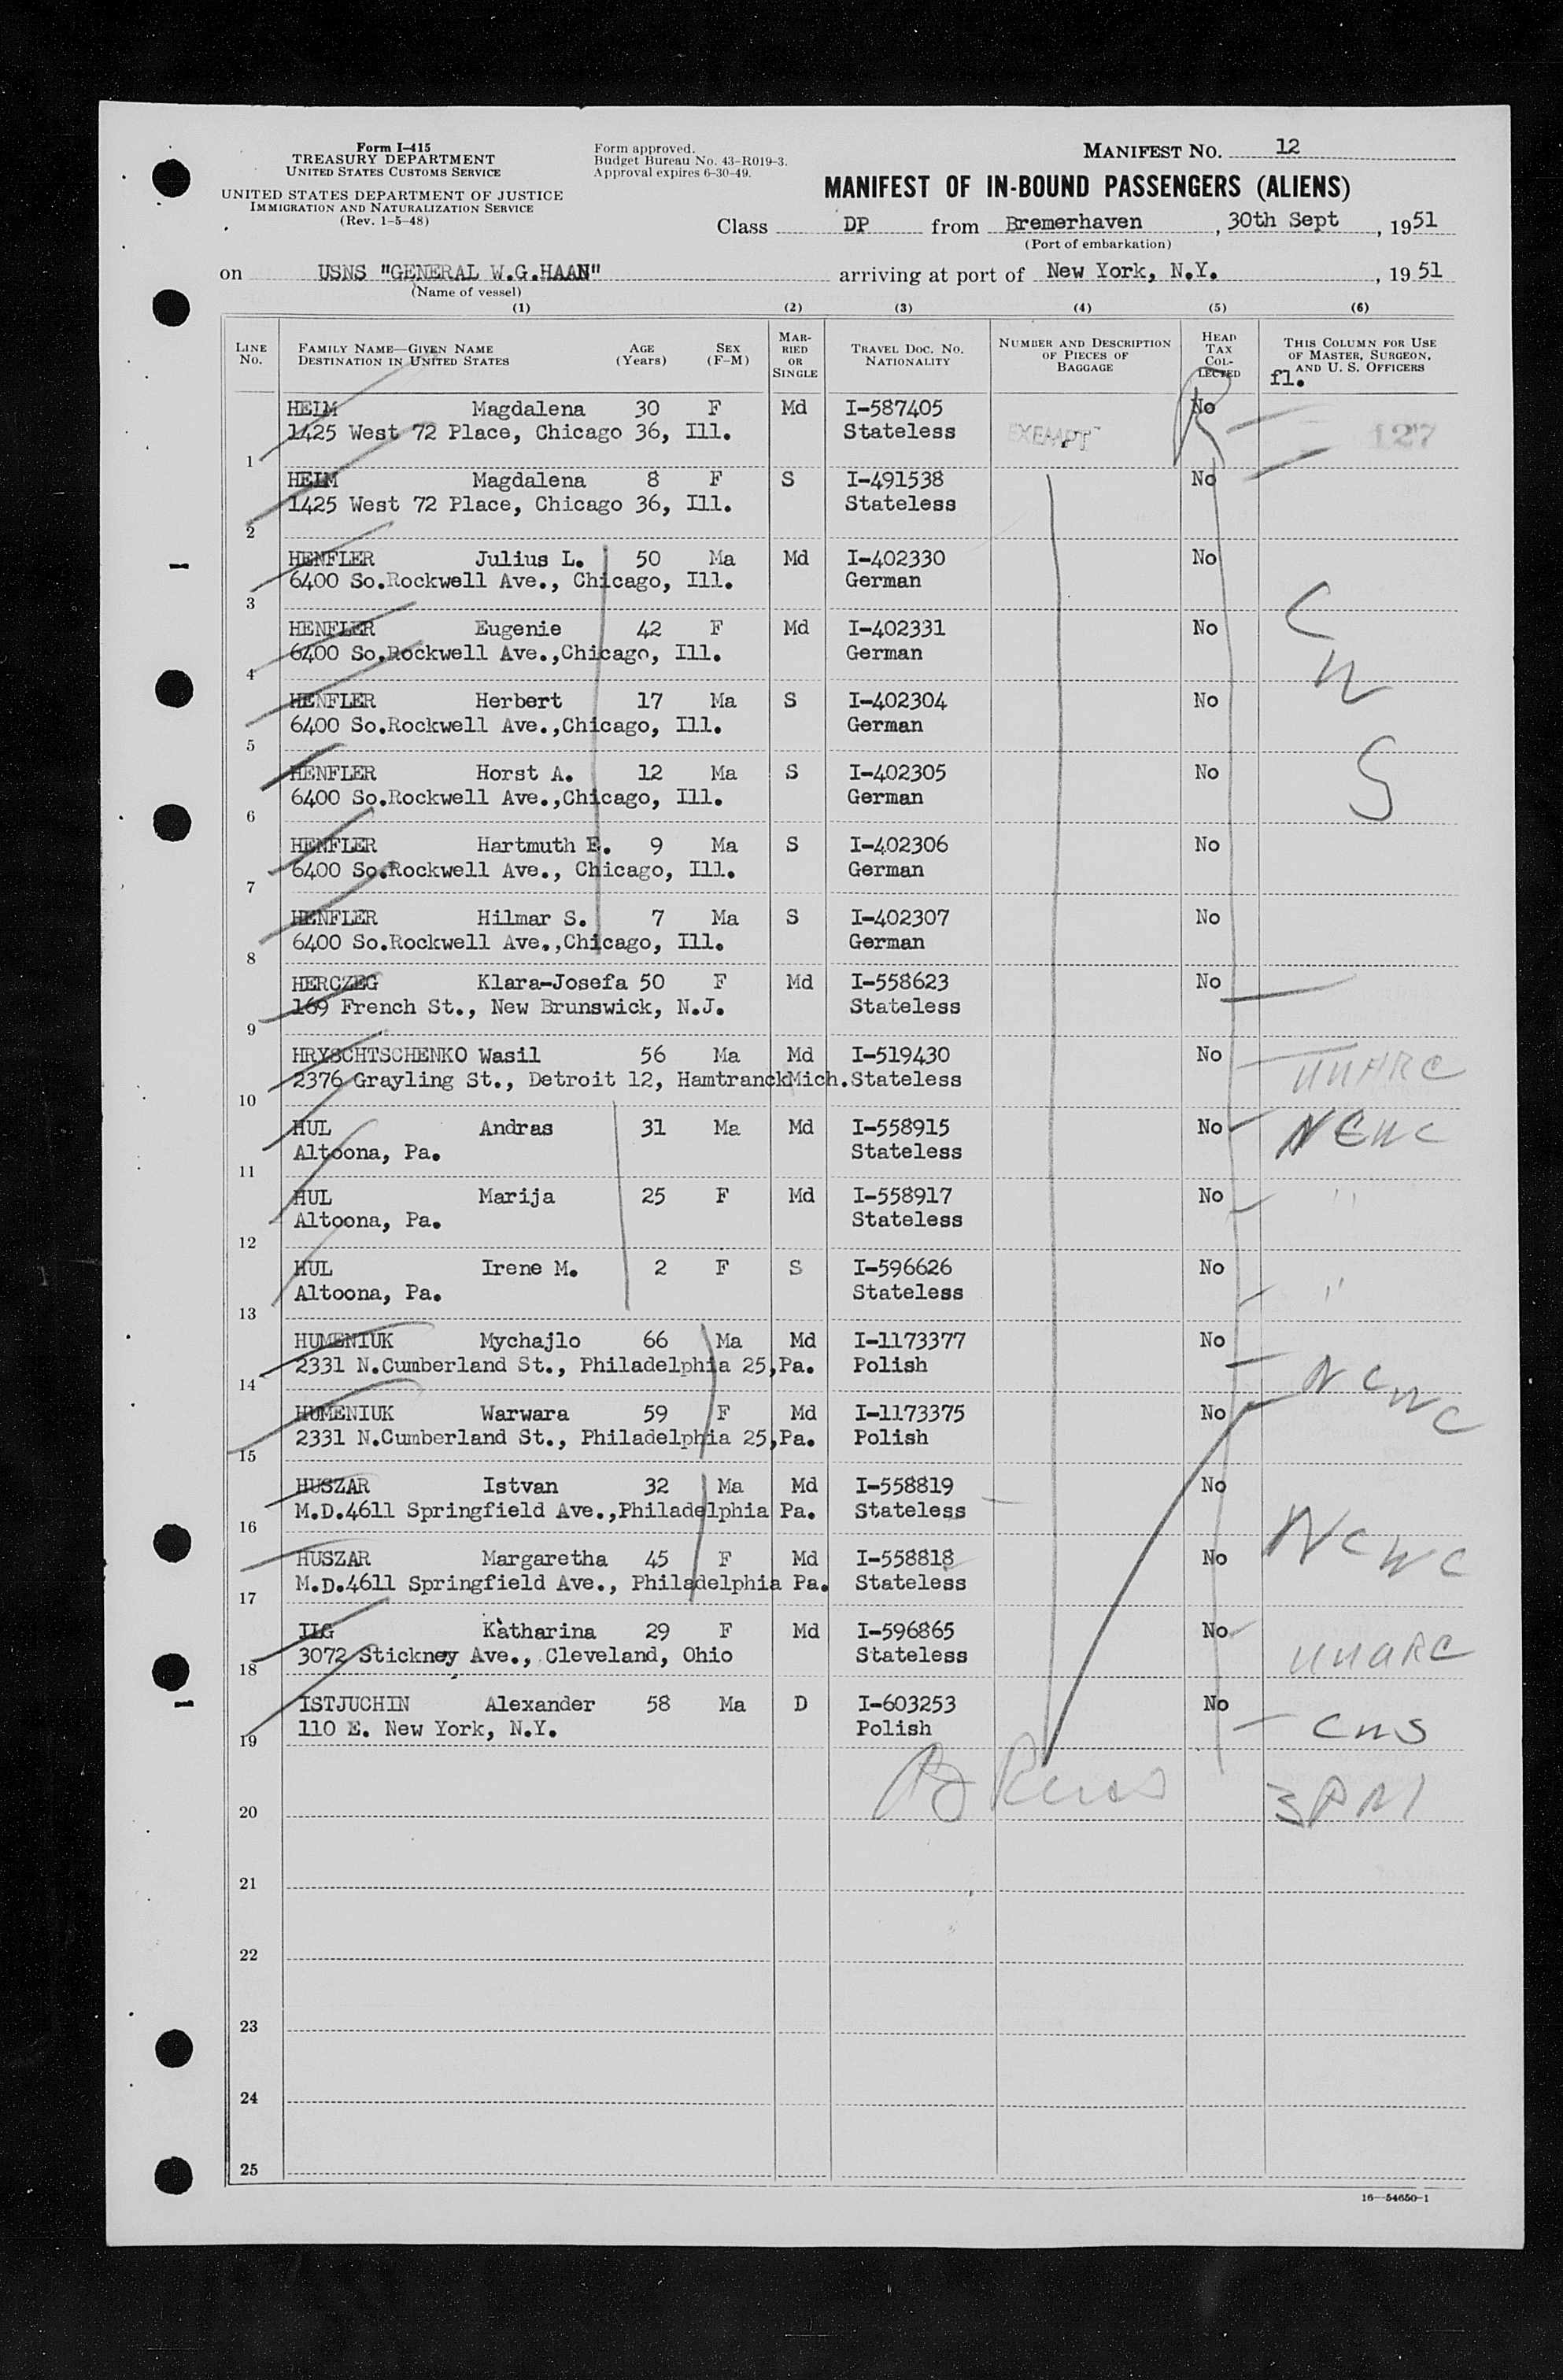 Form I-415
TREASURY DEPARTMENT
UNITED STATES CUSTOMS SERVICE
UNITED STATES DEPARTMENT OF JUSTICE
IMMIGRATION AND NATURALIZATION SERVICE
(Rev. 1-5-48)
Form approved.
Budget Bureau No. 43-R019-3.
Approval expires 6-30-49.
MANIFEST NO. 12
MANIFEST OF IN-BOUND PASSENGERS (ALIENS)
Class DP from Bremerhaven, 30th Sept, 1951
(Port of embarkation)
on USNS "GENERAL W.G.HAAN" arriving at port of New York, N.Y., 1951
(Name of vessel)
(1) (2) (3) (4) (5) (6)
LINE NO. FAMILY NAME—GIVEN NAME DESTINATION IN UNITED STATES AGE (Years) SEX (F-M) MARRIED OR SINGLE TRAVEL DOC. NO. NATIONALITY NUMBER AND DESCRIPTION OF PIECES OF BAGGAGE HEAD TAX COLLECTED THIS COLUMN FOR USE OF MASTER, SURGEON, AND U. S. OFFICERS
fl.
HEIM Magdalena 30 F Md I-587405 No
1425 West 72 Place, Chicago 36, Ill. Stateless EXEMPT 127
1
HEIM Magdalena 8 F S I-491538 No
1425 West 72 Place, Chicago 36, Ill. Stateless
2
HENFLER Julius L. 50 Ma Md I-402330 No
6400 So.Rockwell Ave., Chicago, Ill. German
3
HENFLER Eugenie 42 F Md I-402331 No
6400 So.Rockwell Ave.,Chicago, Ill. German
4
HENFLER Herbert 17 Ma S I-402304 No
6400 So.Rockwell Ave.,Chicago, Ill. German
5
HENFLER Horst A. 12 Ma S I-402305 No
6400 So.Rockwell Ave.,Chicago, Ill. German
6
HENFLER Hartmuth E. 9 Ma S I-402306 No
6400 So.Rockwell Ave., Chicago, Ill. German
7
HENFLER Hilmar S. 7 Ma S I-402307 No
6400 So.Rockwell Ave.,Chicago, Ill. German
8
HERCZEG Klara-Josefa 50 F Md I-558623 No
169 French St., New Brunswick, N.J. Stateless
9
HRYSCHTSCHENKO Wasil 56 Ma Md I-519430 No
2376 Grayling St., Detroit 12, Hamtranck Mich. Stateless
10
HUL Andras 31 Ma Md I-558915 No NCWC
Altoona, Pa. Stateless
11
HUL Marija 25 F Md I-558917 No "
Altoona, Pa. Stateless
12
HUL Irene M. 2 F S I-596626 No "
Altoona, Pa. Stateless
13
HUMENIUK Mychajlo 66 Ma Md I-1173377 No
2331 N.Cumberland St., Philadelphia 25,Pa. Polish NCWC
14
HUMENIUK Warwara 59 F Md I-1173375 No
2331 N.Cumberland St., Philadelphia 25,Pa. Polish
15
HUSZAR Istvan 32 Ma Md I-558819 No
M.D.4611 Springfield Ave.,Philadelphia Pa. Stateless
16
HUSZAR Margaretha 45 F Md I-558818 No NCWC
M.D.4611 Springfield Ave., Philadelphia Pa. Stateless
17
ILG Katharina 29 F Md I-596865 No
3072 Stickney Ave., Cleveland, Ohio Stateless
18
ISTJUCHIN Alexander 58 Ma D I-603253 No
110 E. New York, N.Y. Polish CWS
19
3PM
20
21
22
23
24
25
16—54650-1